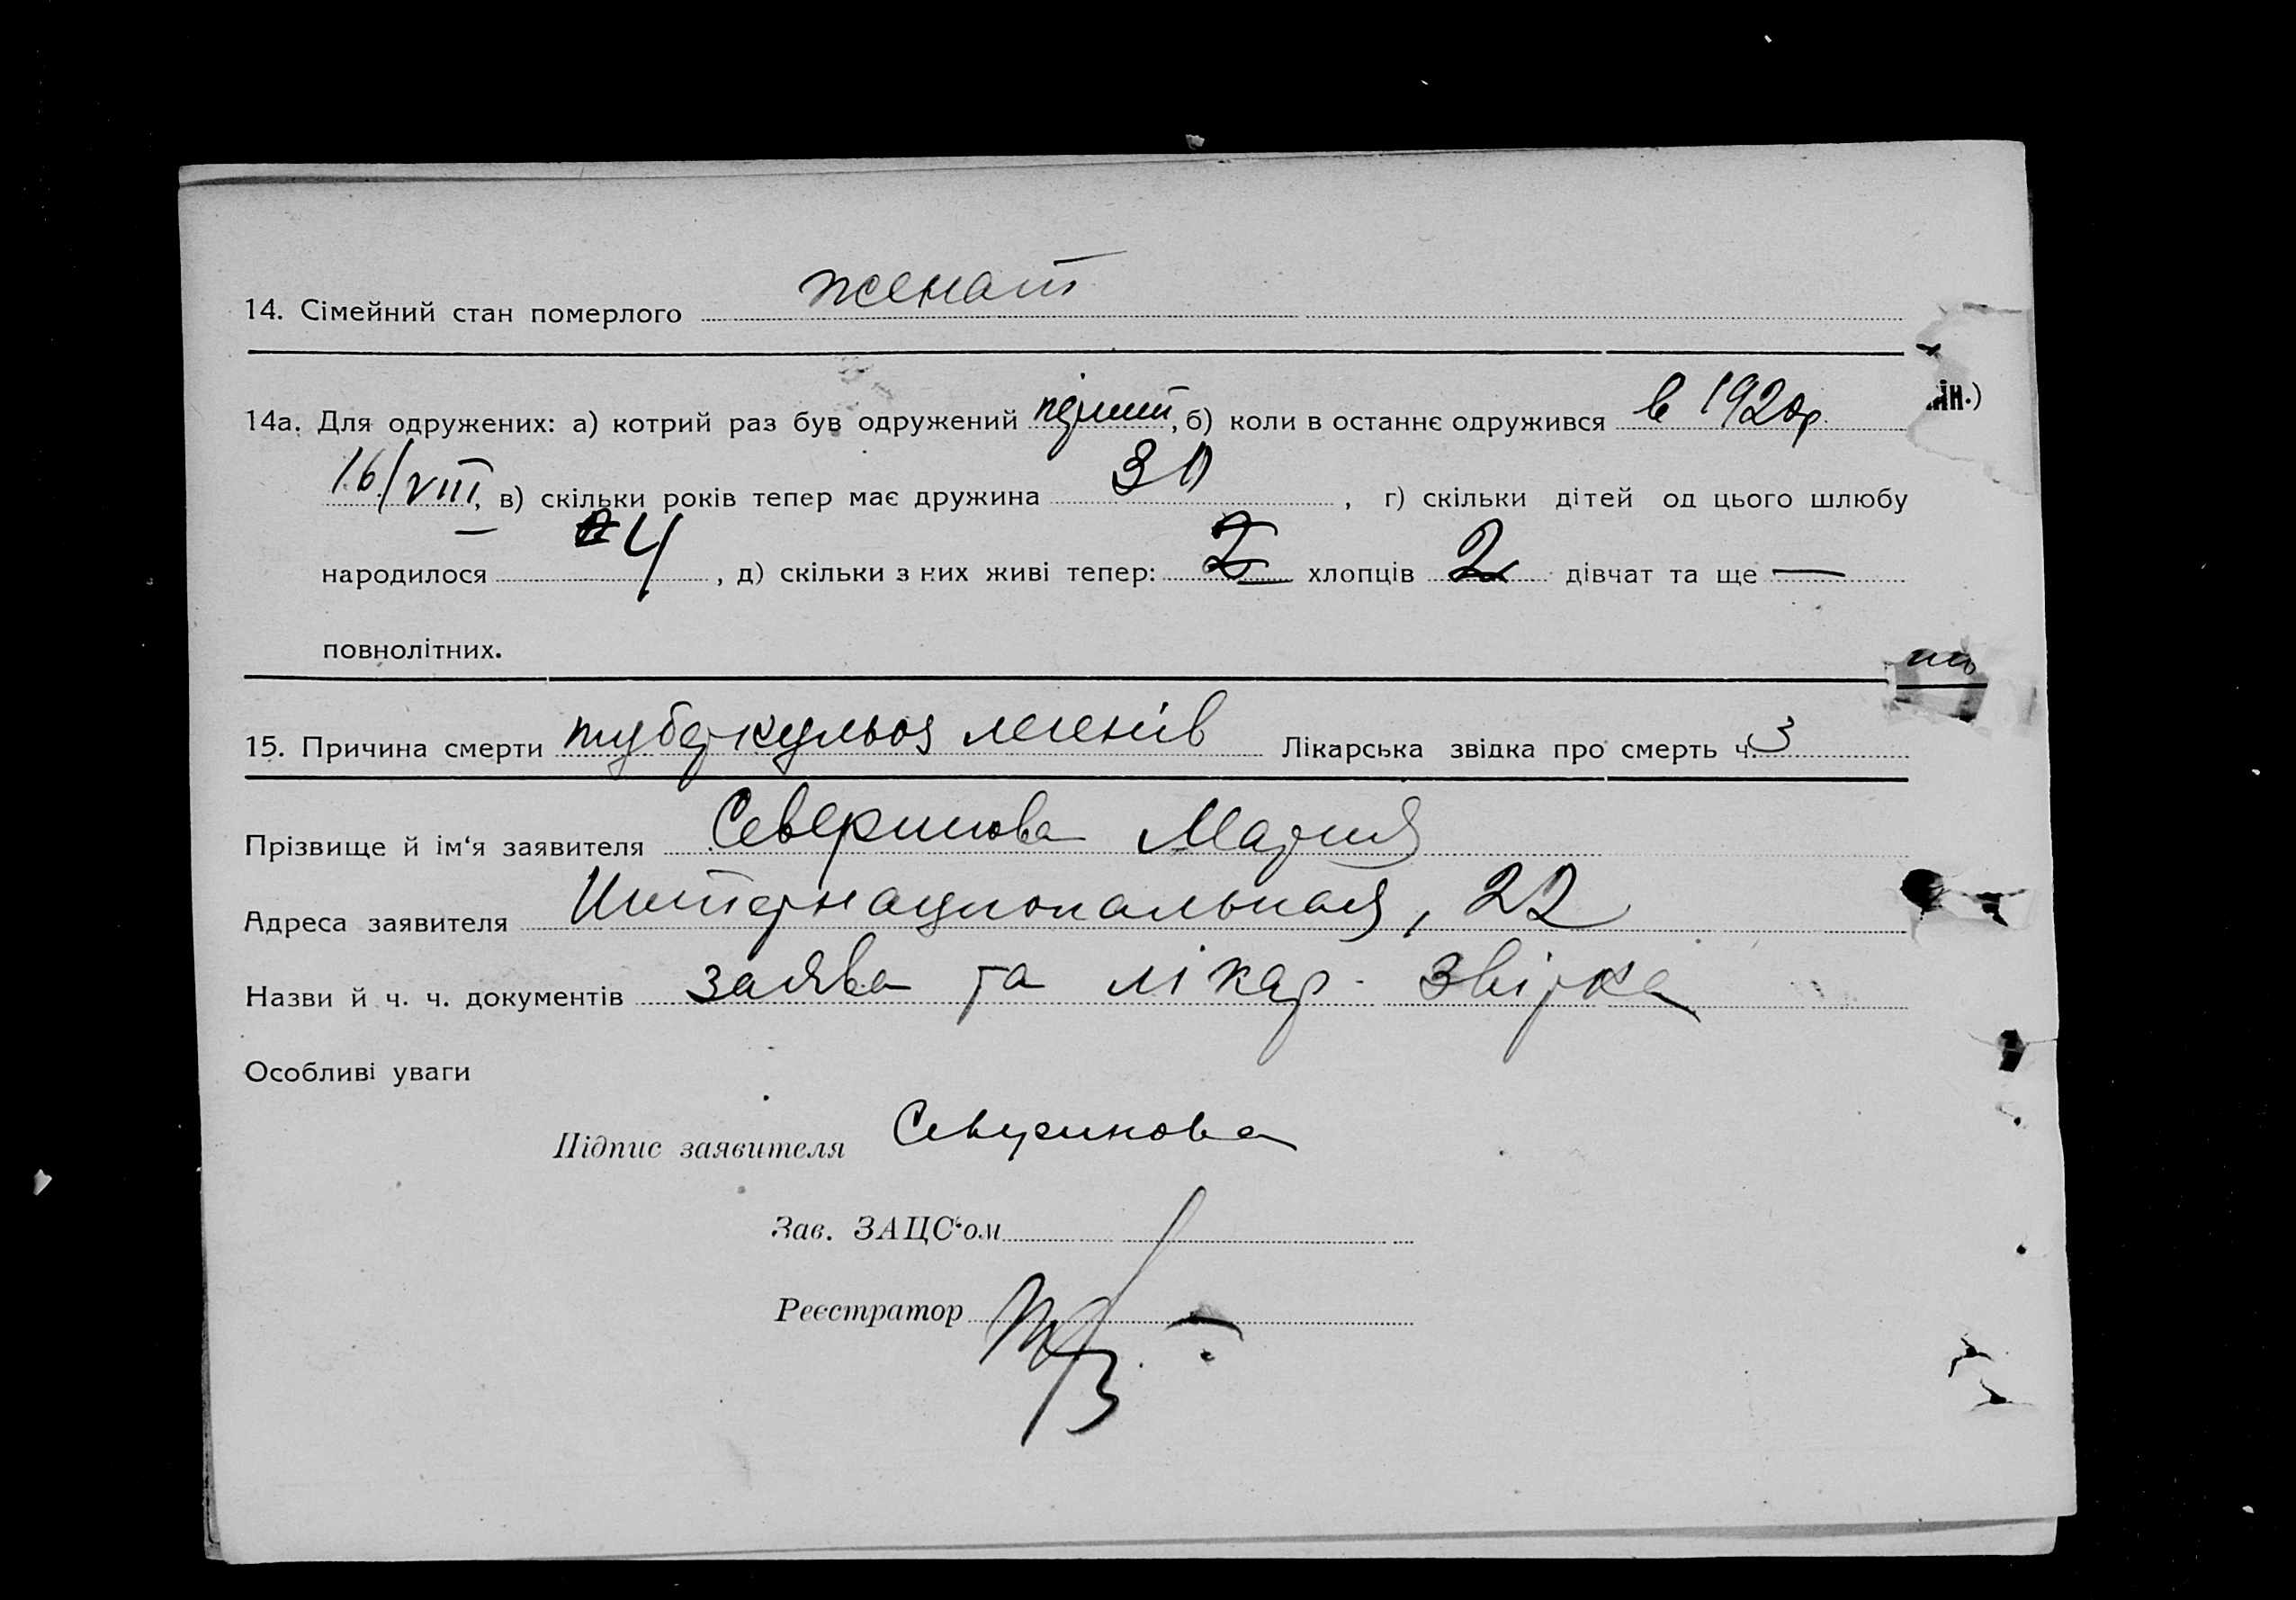 14. Сімейний стан померлого женат
14а. Для одружених: а) котрий раз був одружений перший, б) коли в останнє одружився в 1920р.
16/VIII, в) скільки років тепер має дружина 30, г) скільки дітей од цього шлюбу
народилося 4, д) скільки з них живі тепер: 2 хлопців 2 дівчат та ще —
повнолітних.
15. Причина смерти туберкульоз легенів Лікарська звідка про смерть ч. 3
Прізвище й ім‘я заявителя Северинова Мария
Адреса заявителя Интернациональная, 22
Назви й ч. ч. документів заява та лікар. звідка
Особливі уваги
Підпис заявителя Северинова
Зав. ЗАЦС‘ом
Реєстратор